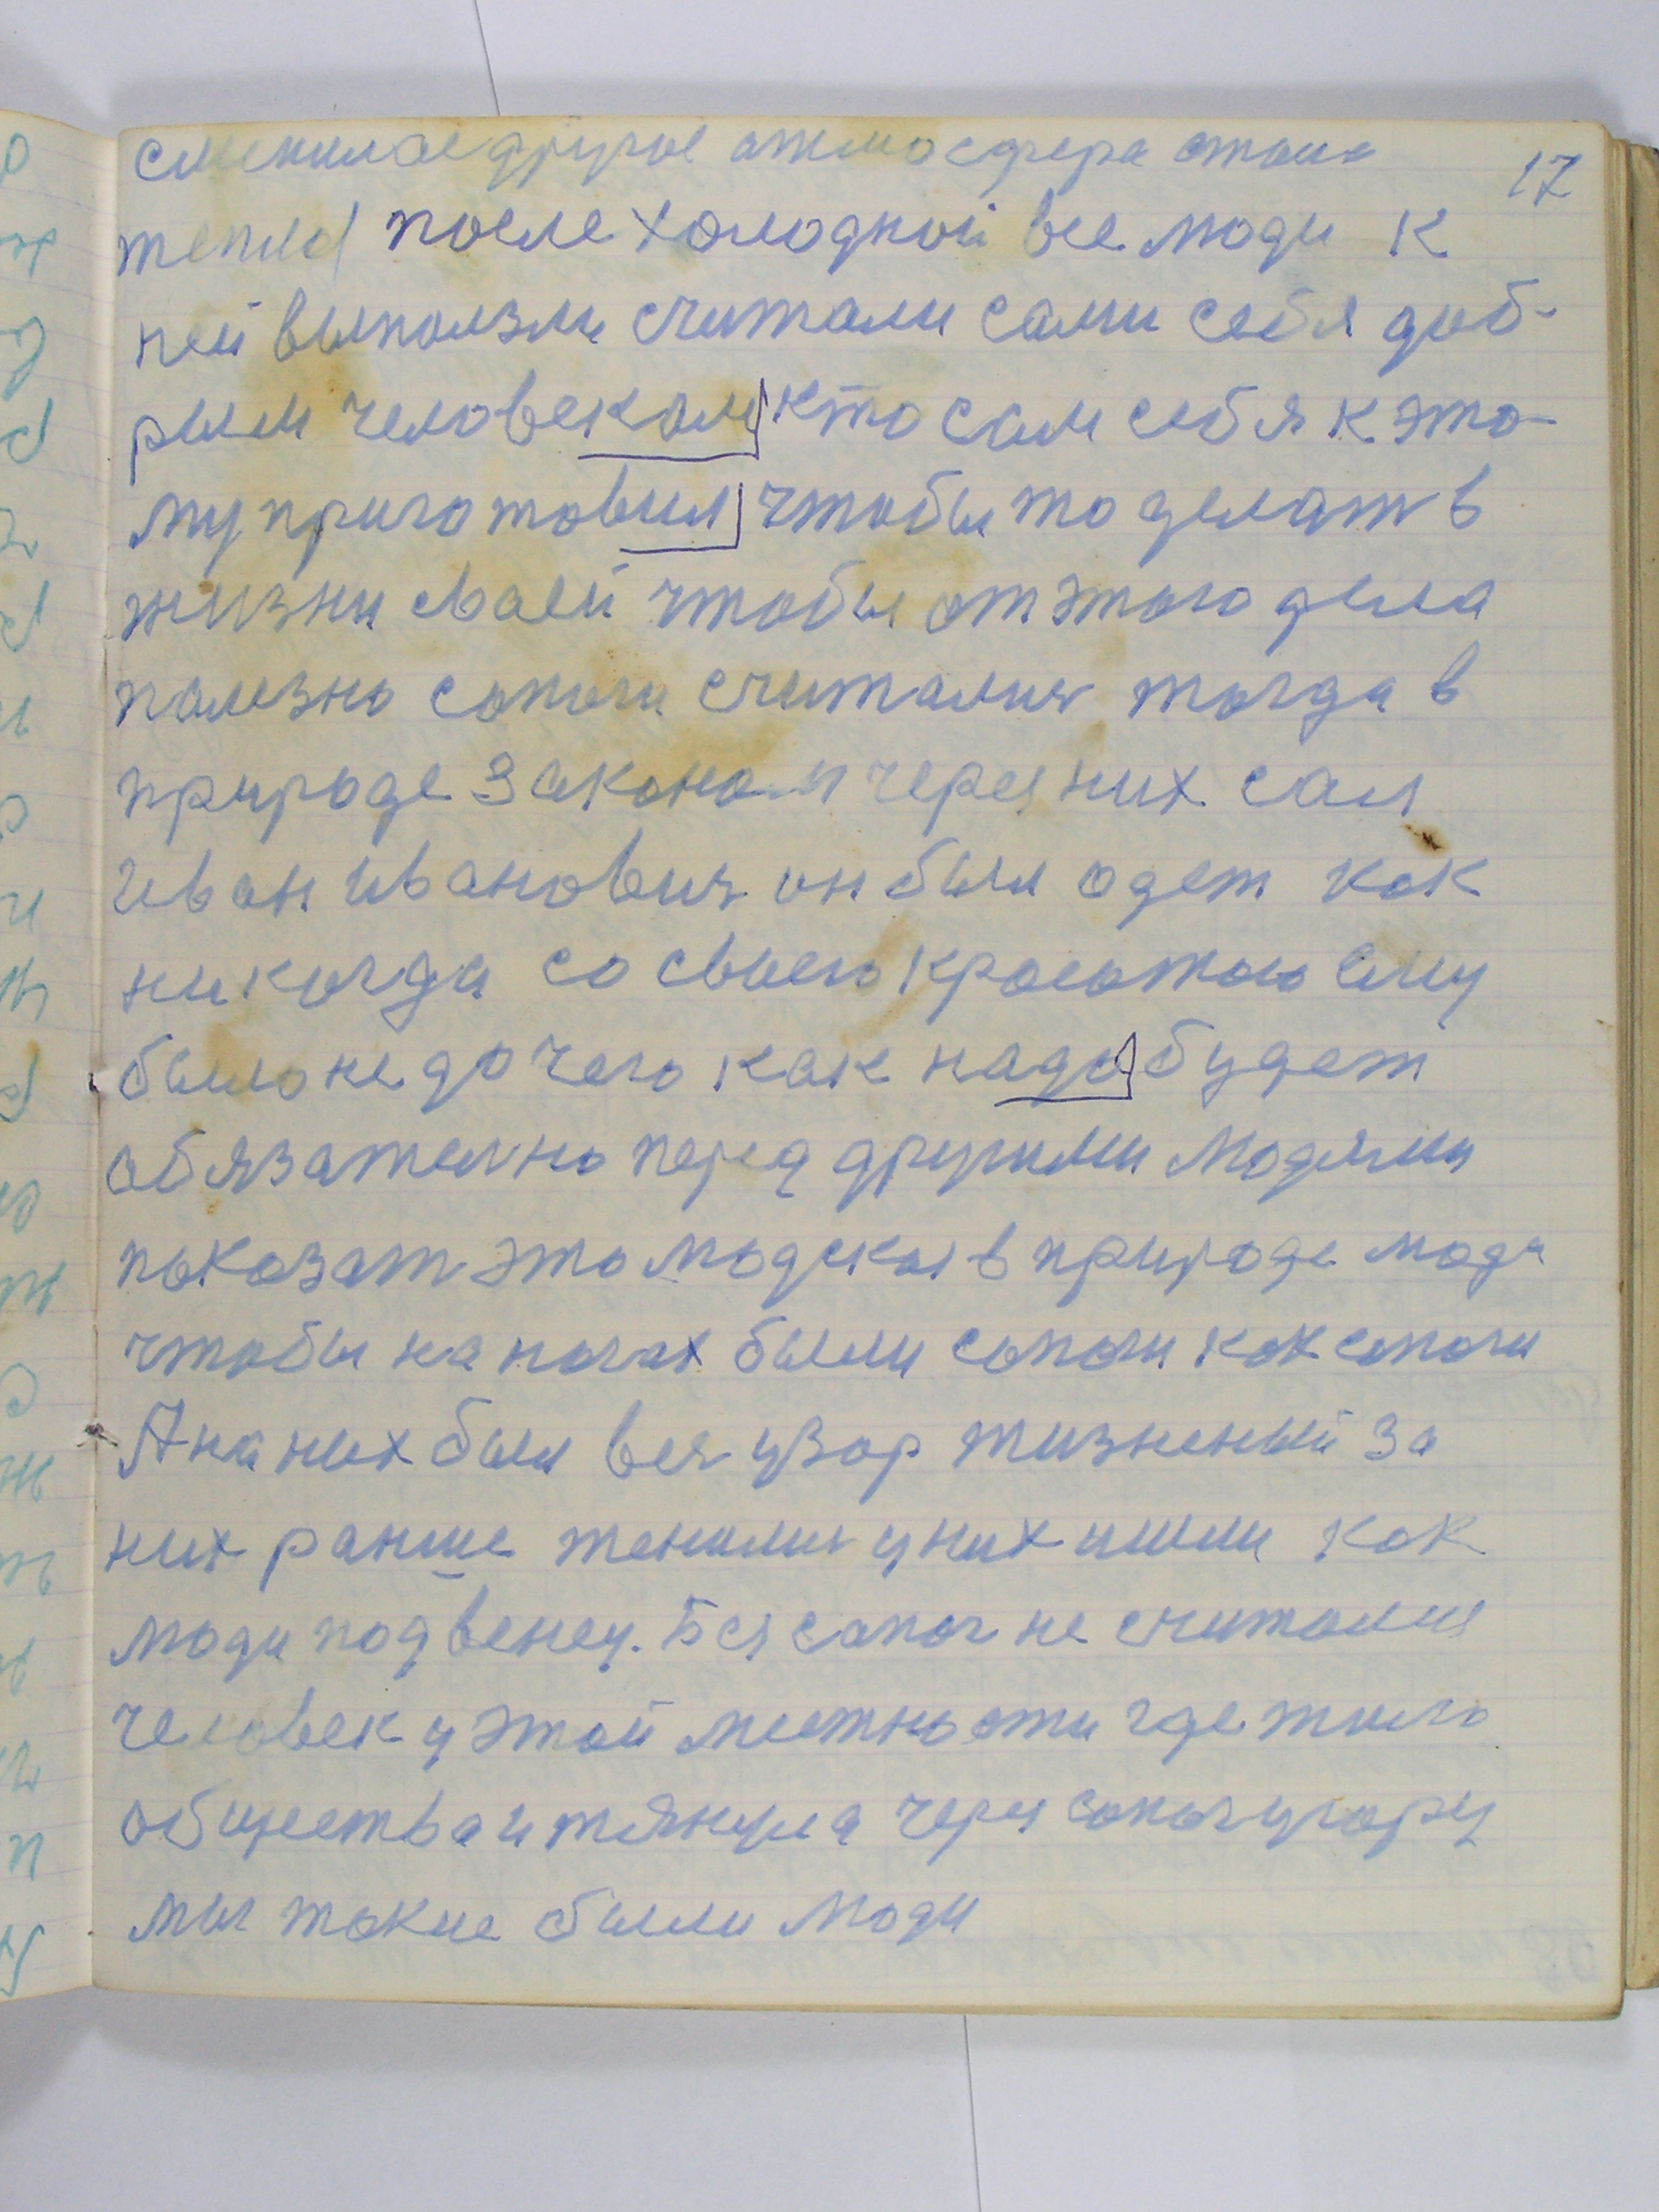 сменилас другие атмосфера стала 17
тепла после холодной все люди к
ней выползли считали сами себя доб-
рым человеком кто сам себя к это-
му приготовил чтобы то делат в
жизни своей чтобы от этого дела
полезно сапоги считались тогда в
природе законом через них сам
Иван Иванович он был одет как
никогда со своею красотою ему
было не до чего как надо будет
обязателно перед другими людями
показат это людская в природе мода
чтобы на ногах были сапоги как сапоги
А на них был весь узор жизненый за
них ранше женились у них ишли как
люди под венец. Без сапог не считался
человек у этой местности где жило
общества и тянула через сапог угору
мы такие были люди